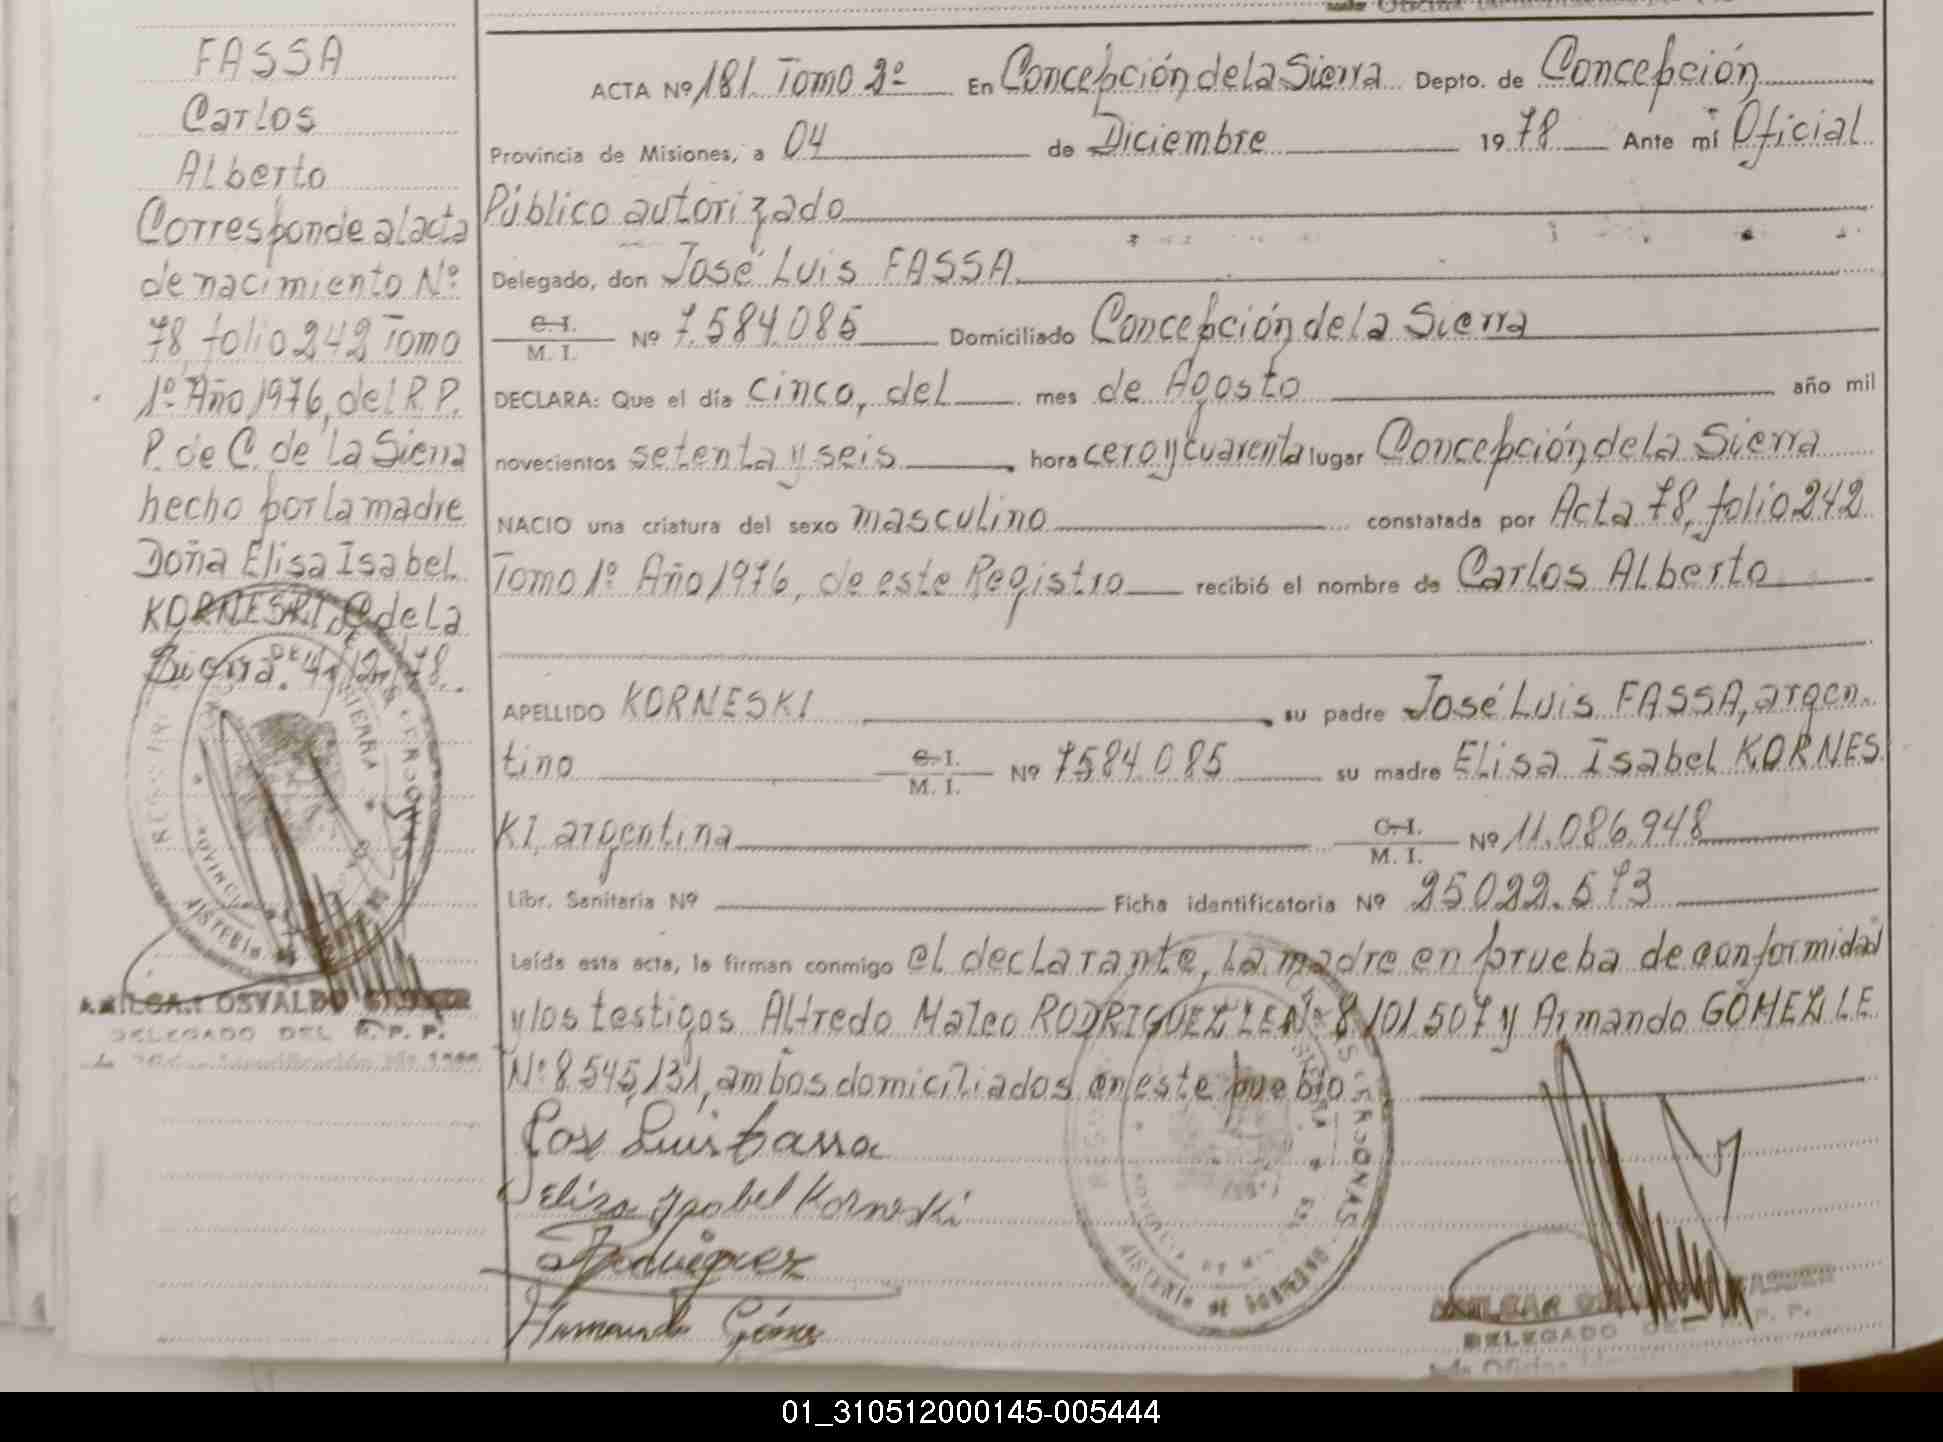 FASSA
Carlos
Alberto
Corresponde al acta
de nacimiento Nº
78, folio 242 Tomo
1º Año 1976, del R.P.
P. de C. de La Sierra
hecho por la madre
Doña Elisa Isabel
KORNESKI C. de La
Sierra. 4/12/78.
OSVALDO
DELEGADO DEL R. P. P.
ACTA Nº 181 Tomo 2º En Concepción de la Sierra Depto. de Concepción
Provincia de Misiones, a 04 de Diciembre 1978 Ante mí Oficial
Público autorizado
Delegado, don José Luis FASSA
C. I. / M. I. Nº 7.584.085 Domiciliado Concepción de la Sierra
DECLARA: Que el día cinco, del mes de Agosto año mil
novecientos setenta y seis hora cero y cuarenta lugar Concepción de la Sierra
NACIO una criatura del sexo masculino constatada por Acta 78, folio 242
Tomo 1º Año 1976, de este Registro recibió el nombre de Carlos Alberto
APELLIDO KORNESKI su padre José Luis FASSA, argen-
tino C. I. / M. I. Nº 7584.085 su madre Elisa Isabel KORNES
KI, argentina C. I. / M. I. Nº 11.086.948
Libr. Sanitaria Nº Ficha identificatoria Nº 25022.573
Leída esta acta, la firman conmigo el declarante, la madre en prueba de conformidad
y los testigos Alfredo Mateo RODRIGUEZ LE Nº 8.101.507 y Armando GOMEZ LE
Nº 8.545.131, ambos domiciliados en este pueblo
José Luis Fassa
Elisa Isabel Korneski
Rodriguez
Armando Gómez
AMILCAR
DELEGADO DEL R. P. P.
01_310512000145-005444